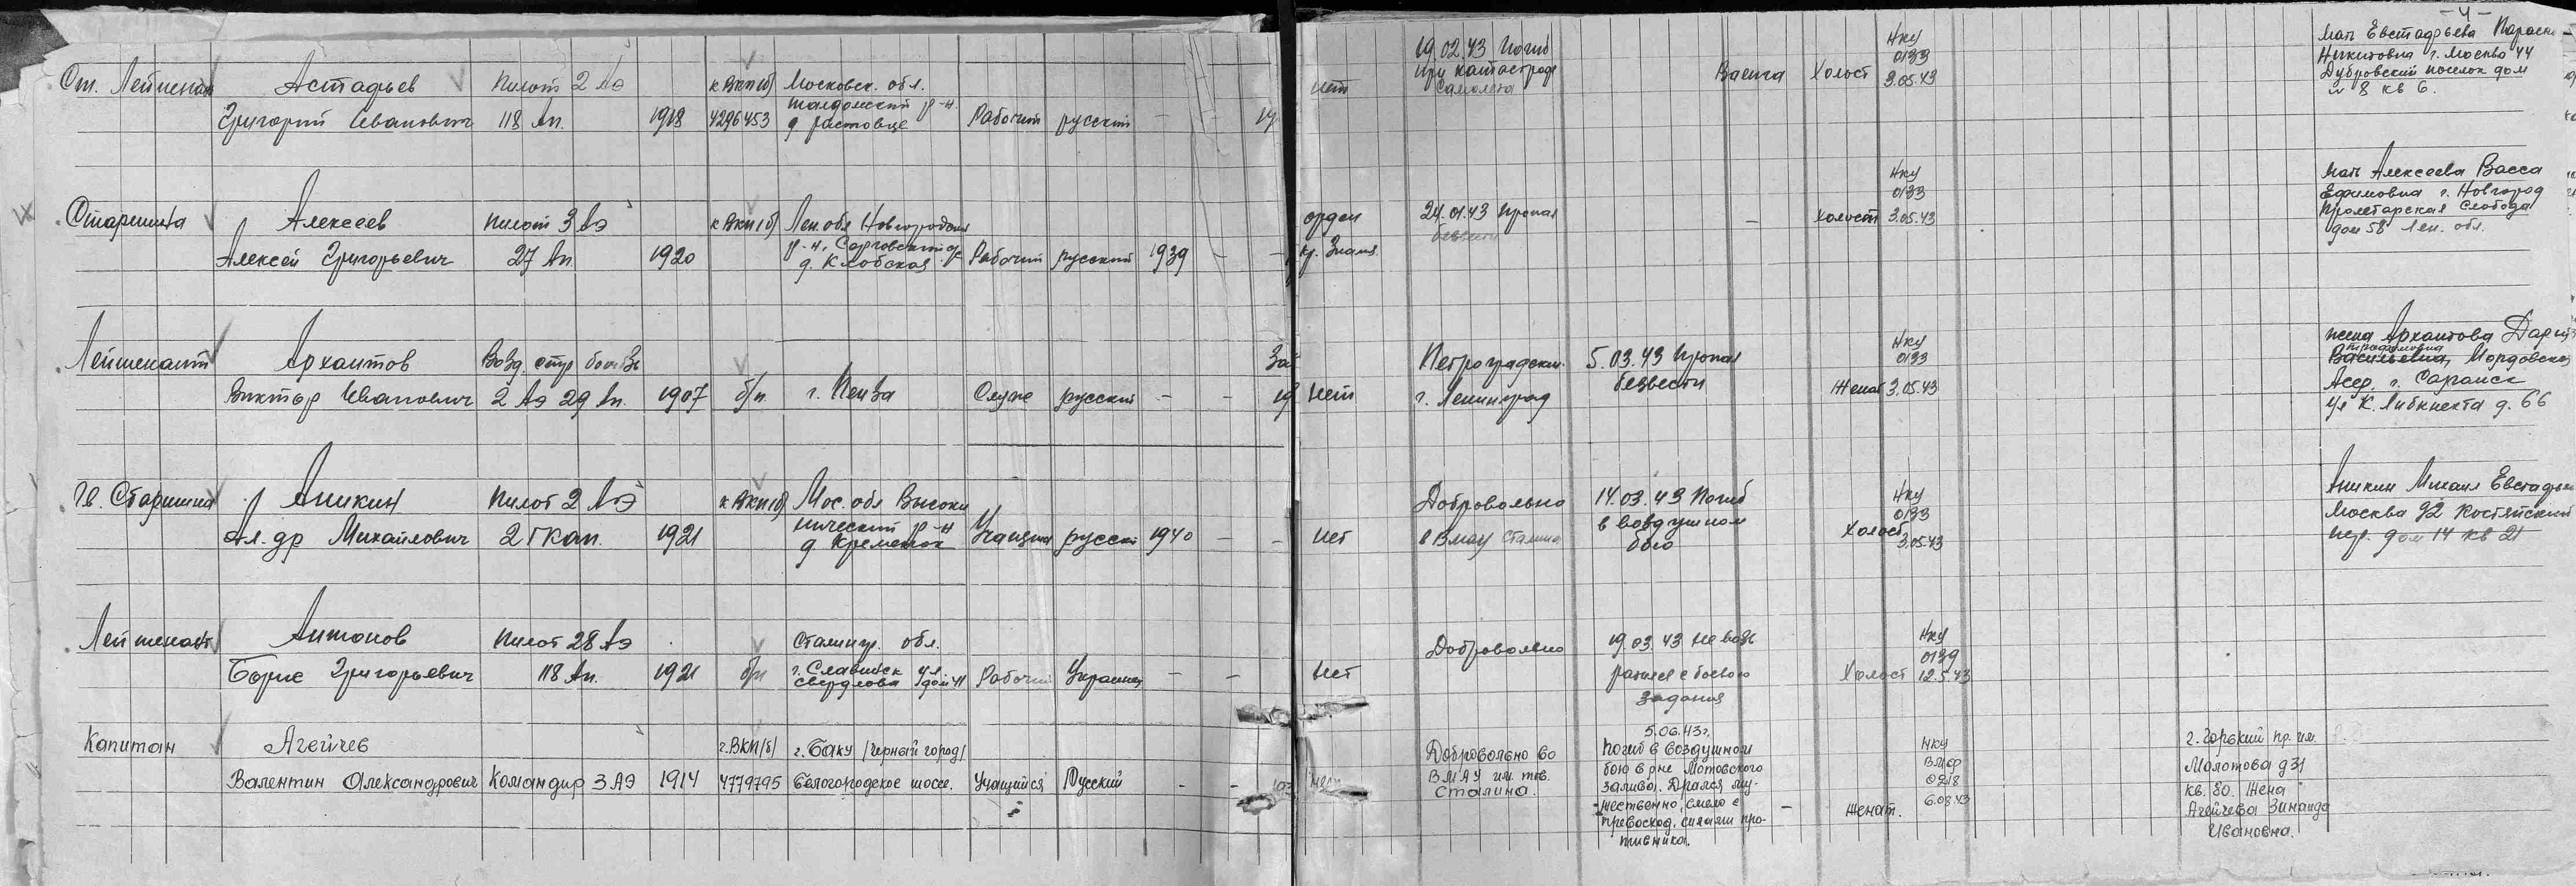 - 4 -
Ст. Лейтенант
Астафьев
Григорий Иванович
пилот 2 АЭ
118 Ап.
1918
к ВКП(б)
4296453
Московск. обл.
Талдомский р-н.
д. Растовце
Рабочий
русский
-
нет
19.02.43 погиб
при катастрофе
самолета
Ваенга
Холост
НКУ
0133
3.05.43
мать Евстафьева Параск
Никитовна г. Москва 44
Дубровский поселок дом
№ 8 кв 6.
Старшина
Алексеев
Алексей Григорьевич
пилот 3 АЭ
27 Ап.
1920
к ВКП(б)
Лен. обл Новгородский
р-н.
Рабочий
русский
1939
-
орден
кр. Знамя
24.01.43 пропал
безвести
-
холост
НКУ
0133
3.05.43
мать Алексеева Васса
Ефимовна г. Новгород
Пролетарская Слобода
дом 58 Лен. обл.
Лейтенант
Архаптов
Виктор Иванович
Возд. стр
2 АЭ 29 Ап.
1907
б/п.
г. Пенза
Служ
русский
-
-
нет
Петроградским
г. Ленинград
5.03.43 пропал
безвести
Женат
НКУ
0133
3.05.43
жена Архаптова Дарья
Васильевна, Мордовская
Асср. г. Саранск
ул К. Либкнехта д. 66
Гв. Старшина
Аникин
Ал-др Михайлович
пилот 2 АЭ
2 ГКАП.
1921
к ВКП(б)
Мос. обл Высоки
нический р-н
д. Кременок
Учащийся
русский
1940
-
-
нет
Добровольно
в Вмау Сталина
14.03.43 погиб
в воздушном
бою
Холост
НКУ
0133
3.05.43
Аникин Михаил Евстафье
Москва 92 Костянский
пер. дом 14 кв 21
Лейтенант
Антонов
Борис Григорьевич
пилот 28 АЭ
118 Ап.
1921
б/п
Сталинр. обл.
г. Славянск ул
Свердлова
Рабочий
Украинец
-
-
нет
Добровольно
19.03.43 не возв
ратился с боевого
задания
Холост
НКУ
0139
12.5.43
Капитан
Агейчев
Валентин Александрович
Командир 3 АЭ
1914
г. ВКП/б/
4779795
г. Баку /Черный город/
Белогородское шоссе.
Учащийся
Русский
-
-
нет
Добровольно во
ВМАУ им. тов.
Сталина.
5.06.43г.
Погиб в воздушном
бою в р-не Мотовского
залива. Дрался му-
жественно, смело с
превосход. силами про-
тивника.
-
Женат.
НКУ
ВМФ
0218
6.08.43
г. Горький пр. им.
Молотова д 31
кв. 80. Жена
Агейчева Зинаида
Ивановна.